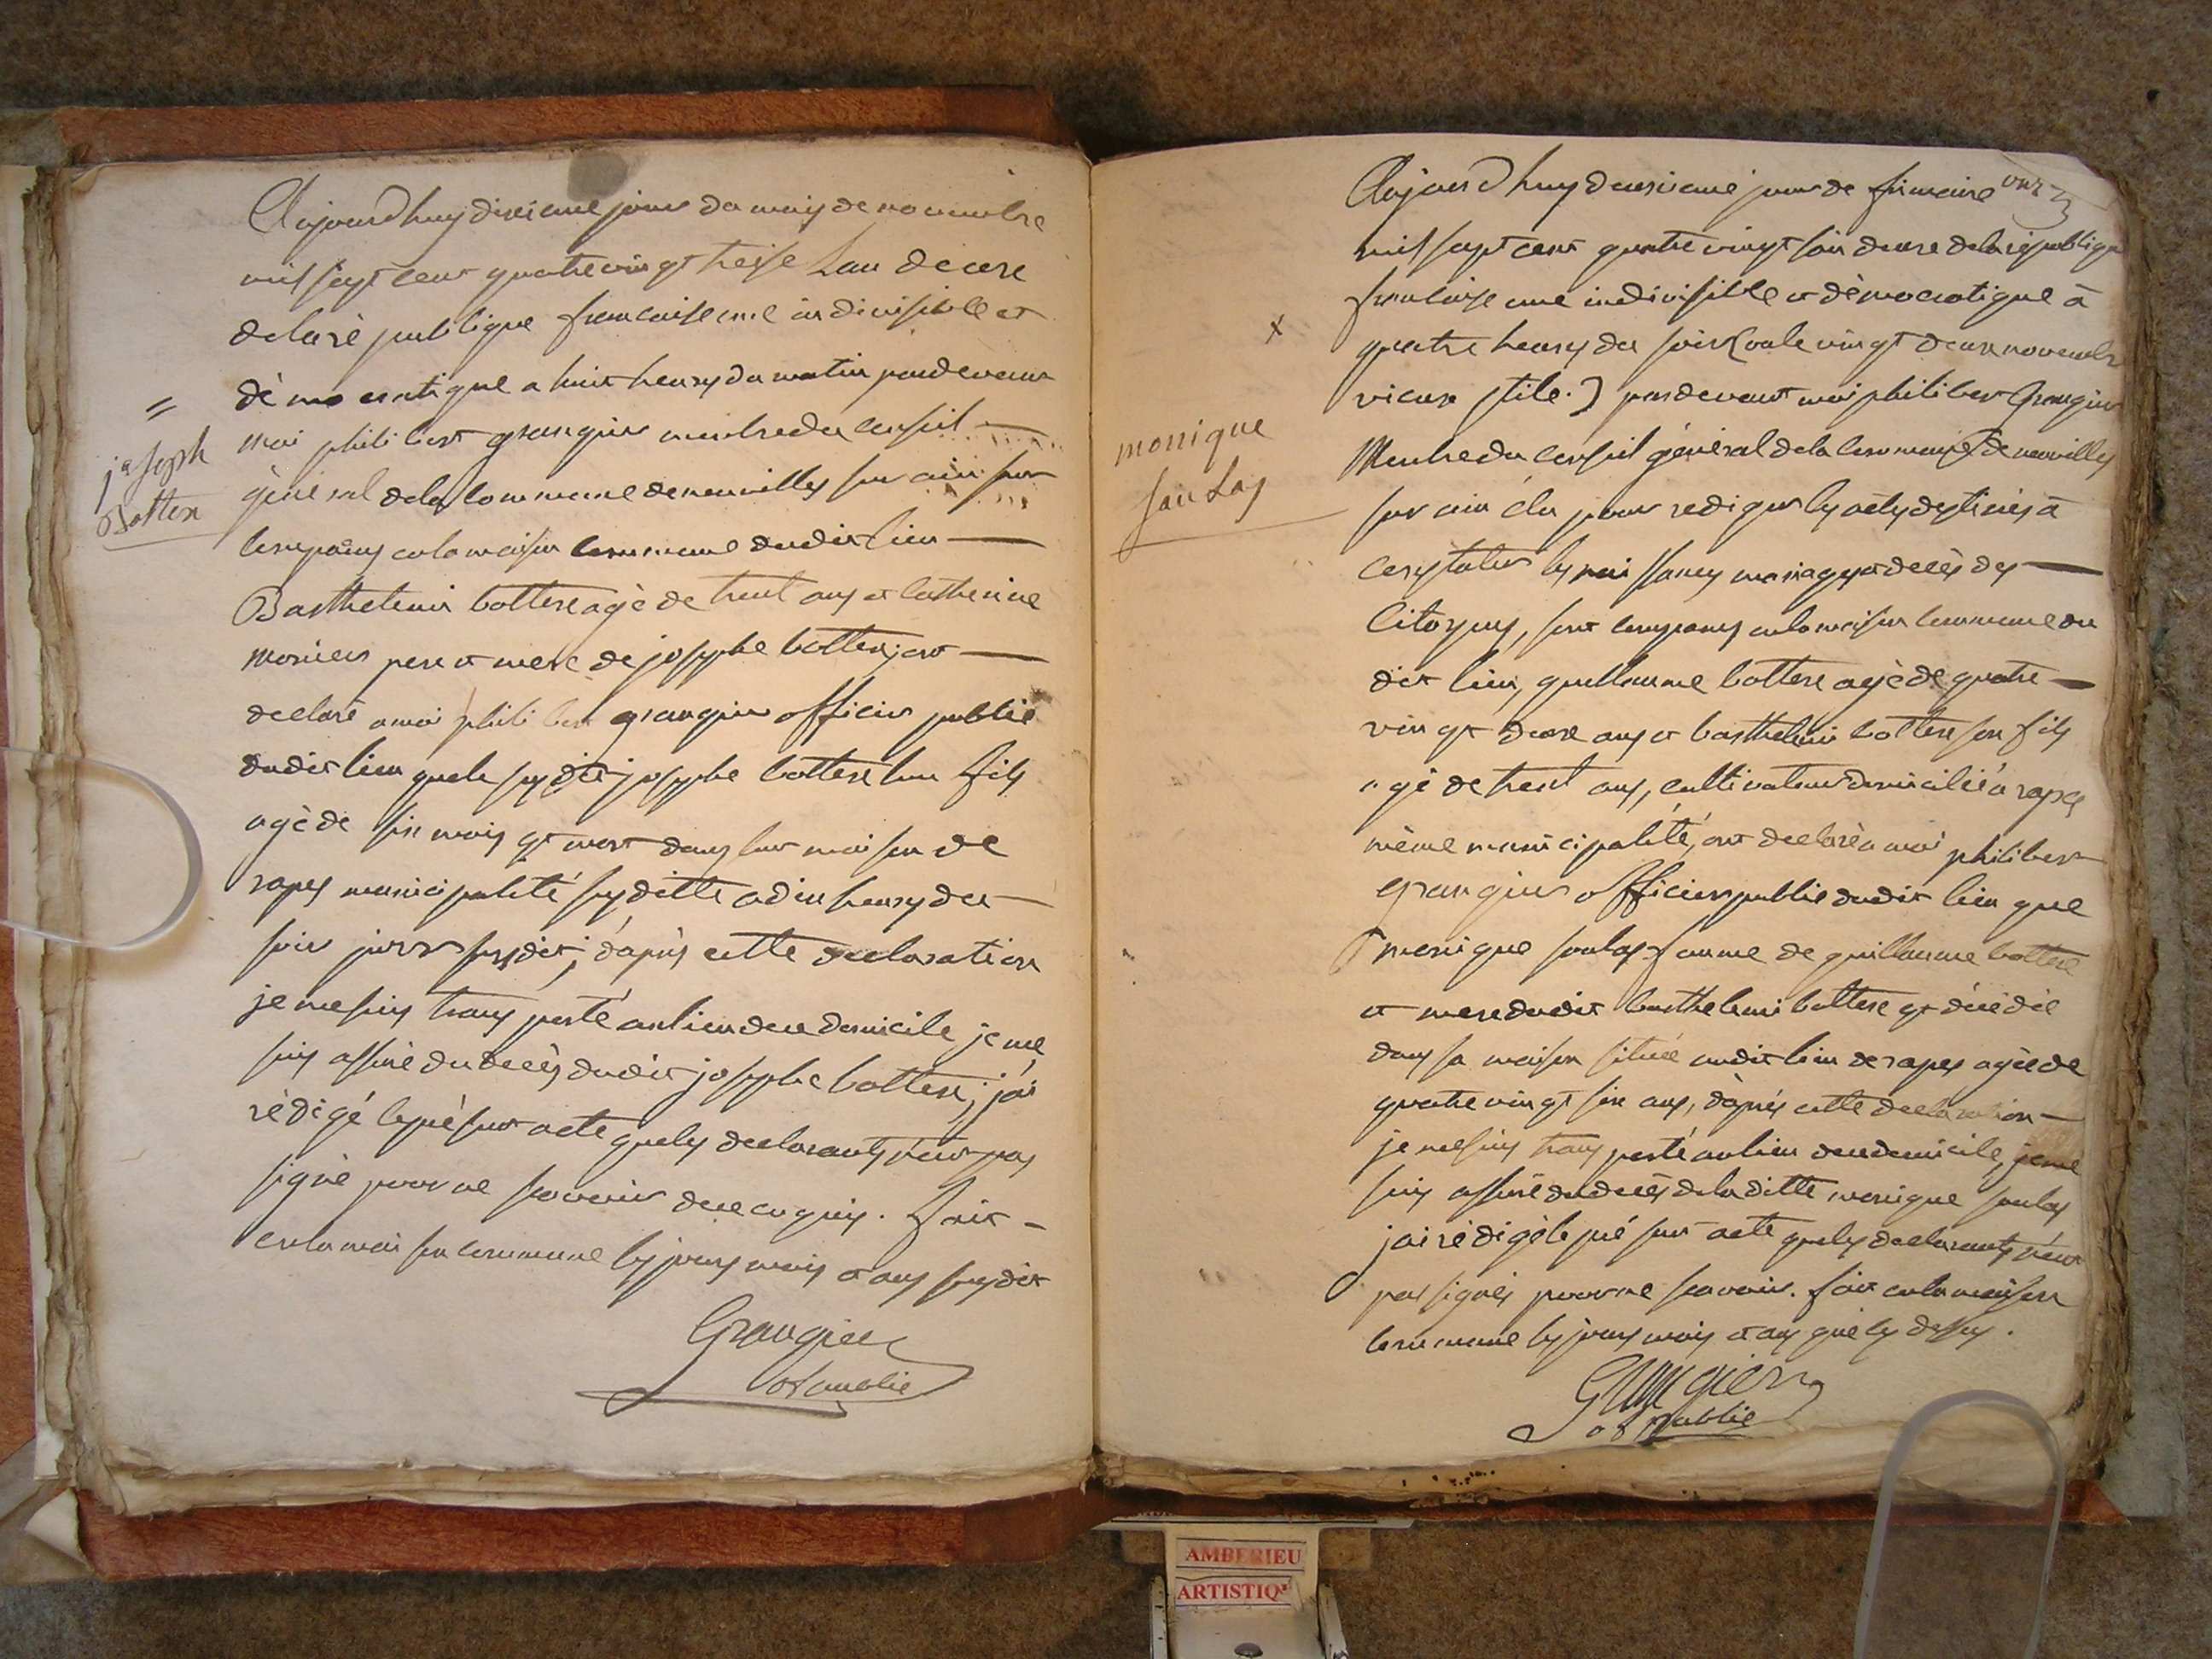 Aujourdhuy dixieme jour du mois de novembre
mil sept cent quatre vingt treise Lan deuxe
de la rèpublique francaise une indivisible et
dèmocratique a huit heures du matin pardevant
=
moi philibert grangier membre du conseil
joseph
Bottex
gènèral dela commune de neuvilles sur ain sont
comparus en la maison commune dudit lieu
Barthelemi bottex agè de trent ans et catherine
monier pere et mere de josephe bottex; ont
declarè a moi philibert grangier officier public
dudit lieu que le susdit josephe bottex leur fils
agè de six mois est mort dans leur maison de
rapes municipalité susditte a dix heures du
soir jour susdit; d'après cette declaration
je me suis transporté au lieu de ce domicile je me
suis assurè du decès dudit josephe bottex; j'ai
rèdigé le présent acte que les declarants n'ont pas
signè pour ne scavoir de ce enquis. fait
en la maison commune les jours mois et ans susdit
Grangier
of public
Aujourdhuy deuxieme jour de frimaire
mil sept cent quatre vingt deuxe de la rèpublique
francaise une indivisible et dèmocratique à
x
quatre heures du soir (vale vingt deux novembre
vieux stile.) pardevant moi philibert Grangier
monique
Saulas
Membre du conseil gènèral dela commune de neuvilles
sur ain élu pour rediger les actes destinés à
constater les naissances mariages et decès des
Citoyens, sont comparus en la maison commune du
dit lieu, guillaume bottex agè de quatre
vingt deux ans et barthelemi bottex son fils
agé de trent ans, cultivateurs domicilié à rapes
même municipalité, ont declarè a moi philibert
grangier officier public dudit lieu que
monique saulas famme de guillaume bottex
et mere dudit barthelemi bottex est dècèdèe
dans sa maison situèe audit lieu de rapes agèe de
quatre vingt six ans, d'après cette declaration
je me suis transporté au lieu de ce domicile, je me
suis assurè du decès de la ditte monique saulas
jai rèdigè le présent acte que les declarants n'ont
pas signès pour ne scavoir. fait en la maison
commune les jours mois et ans que cy dessus.
Grangier
of public
AMBERIEU
ARTISTIQ